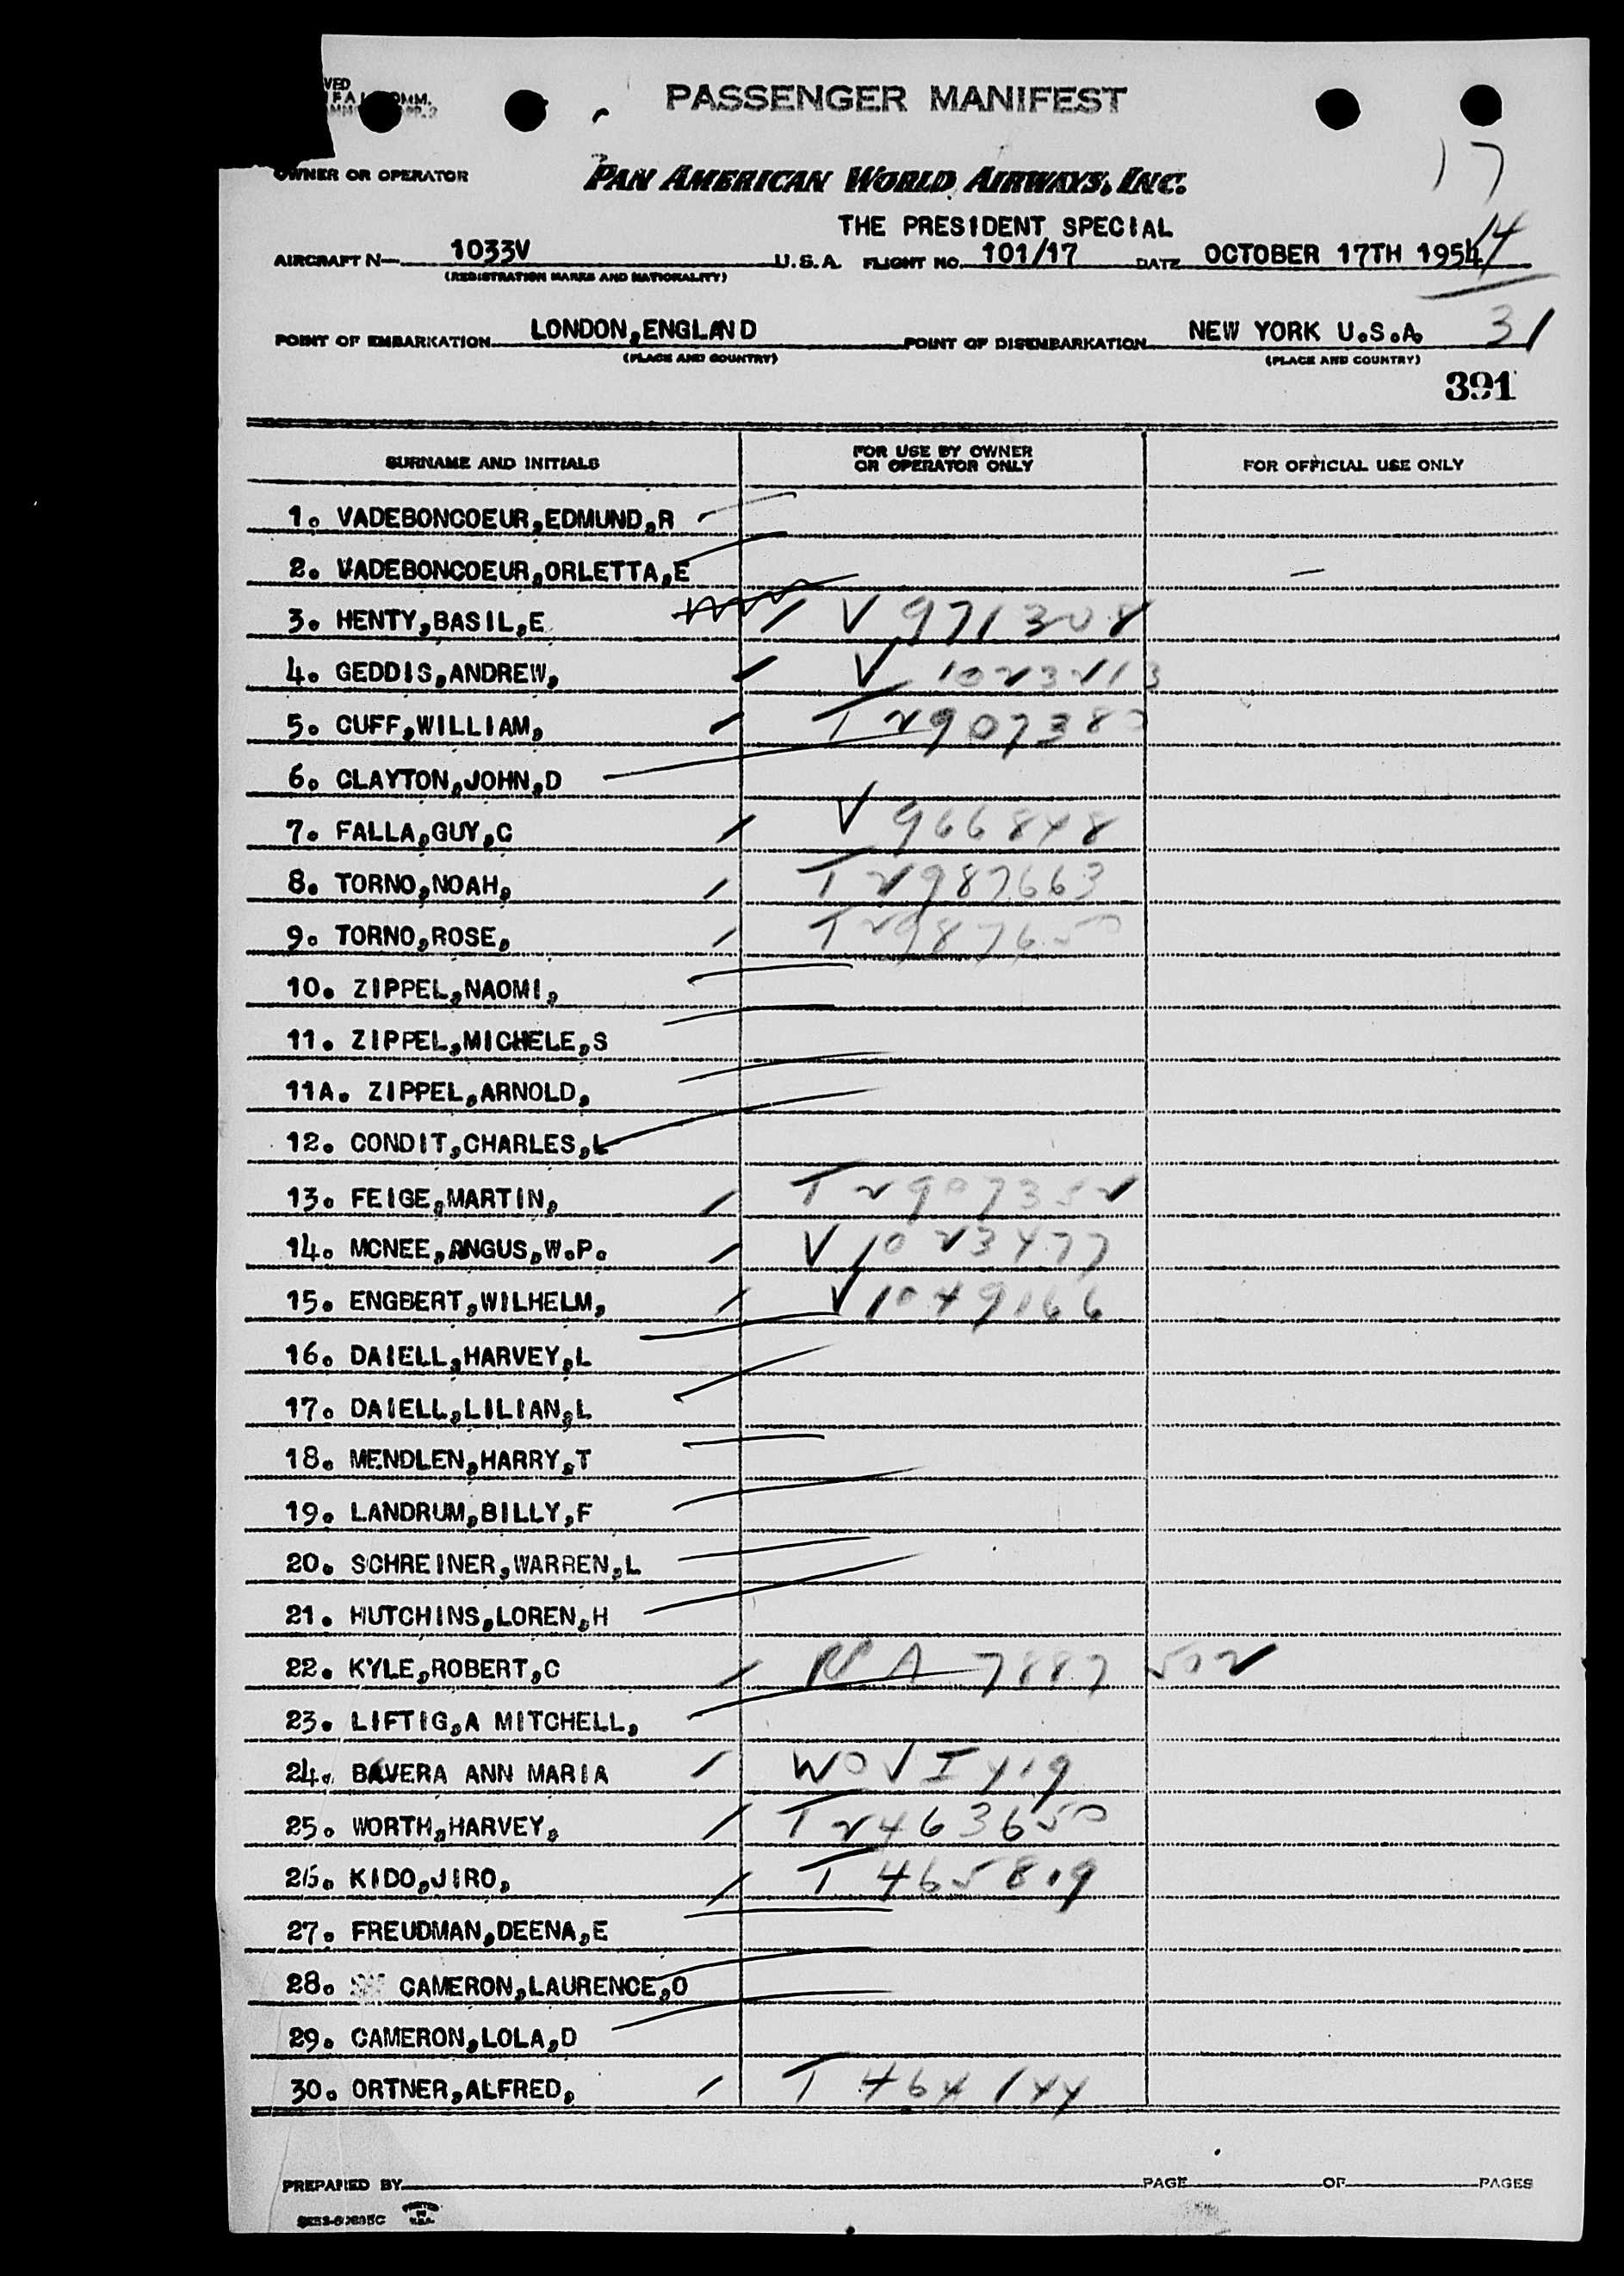 PASSENGER MANIFEST
17
OWNER OR OPERATOR PAN AMERICAN WORLD AIRWAYS, INC.
THE PRESIDENT SPECIAL 14
AIRCRAFT N— 1033V U.S.A. FLIGHT NO. 101/17 DATE OCTOBER 17TH 1954
(REGISTRATION MARKS AND NATIONALITY)
POINT OF EMBARKATION LONDON,ENGLAND POINT OF DISEMBARKATION NEW YORK U.S.A. 31
(PLACE AND COUNTRY) (PLACE AND COUNTRY)
391
SURNAME AND INITIALS FOR USE BY OWNER OR OPERATOR ONLY FOR OFFICIAL USE ONLY
1. VADEBONCOEUR,EDMUND,R
2. VADEBONCOEUR,ORLETTA,E
3. HENTY,BASIL,E V 971308
4. GEDDIS,ANDREW, V 1023213
5. CUFF,WILLIAM, T 2907380
6. CLAYTON,JOHN,D
7. FALLA,GUY,C V 966848
8. TORNO,NOAH, T 2987663
9. TORNO,ROSE, T 2987650
10. ZIPPEL,NAOMI,
11. ZIPPEL,MICHELE,S
11A. ZIPPEL,ARNOLD,
12. CONDIT,CHARLES,L
13. FEIGE,MARTIN, T 2907352
14. MCNEE,ANGUS,W.P. V 1023477
15. ENGBERT,WILHELM, V 1049166
16. DAIELL,HARVEY,L
17. DAIELL,LILIAN,L
18. MENDLEN,HARRY,T
19. LANDRUM,BILLY,F
20. SCHREINER,WARREN,L
21. HUTCHINS,LOREN,H
22. KYLE,ROBERT,C A 7887502
23. LIFTIG,A MITCHELL,
24. BAVERA ANN MARIA
25. WORTH,HARVEY, T 2463650
26. KIDO,JIRO, T 465819
27. FREUDMAN,DEENA,E
28. CAMERON,LAURENCE,O
29. CAMERON,LOLA,D
30. ORTNER,ALFRED, T 464144
PREPARED BY PAGE OF PAGES